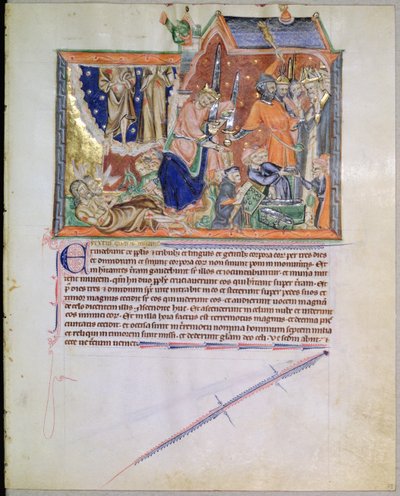 Et videbunt de pplis et tribubz et linguis et gentibz corpora eor per tres dies
et dimidium et corpora eor non sinunt poni in monumentis. Et in
habitantes terram gaudebunt sup illos et iocundabuntur et munera mit
tent invicem. qm hii duo pphe cruciaverunt eos qui habitant super terram. Et
post dies tres et dimidium sps vite intravit in eos et steterunt super pedes suos et
timor magnus cecidit sup eos qui viderunt eos. et audierunt vocem magnam
de celo dicentem illis ascendite huc. Et ascenderunt in celum in nube et viderunt
eos inimici eor. Et in illa hora factus est terremotus magnus et decima pars
civitatis cecidit. et occisa sunt in terremotu nomina hominum septem milia
et reliqui in timorem sunt missi et dederunt gliam deo celi. Ve scdm abiit et
ecce ve tercium veniet